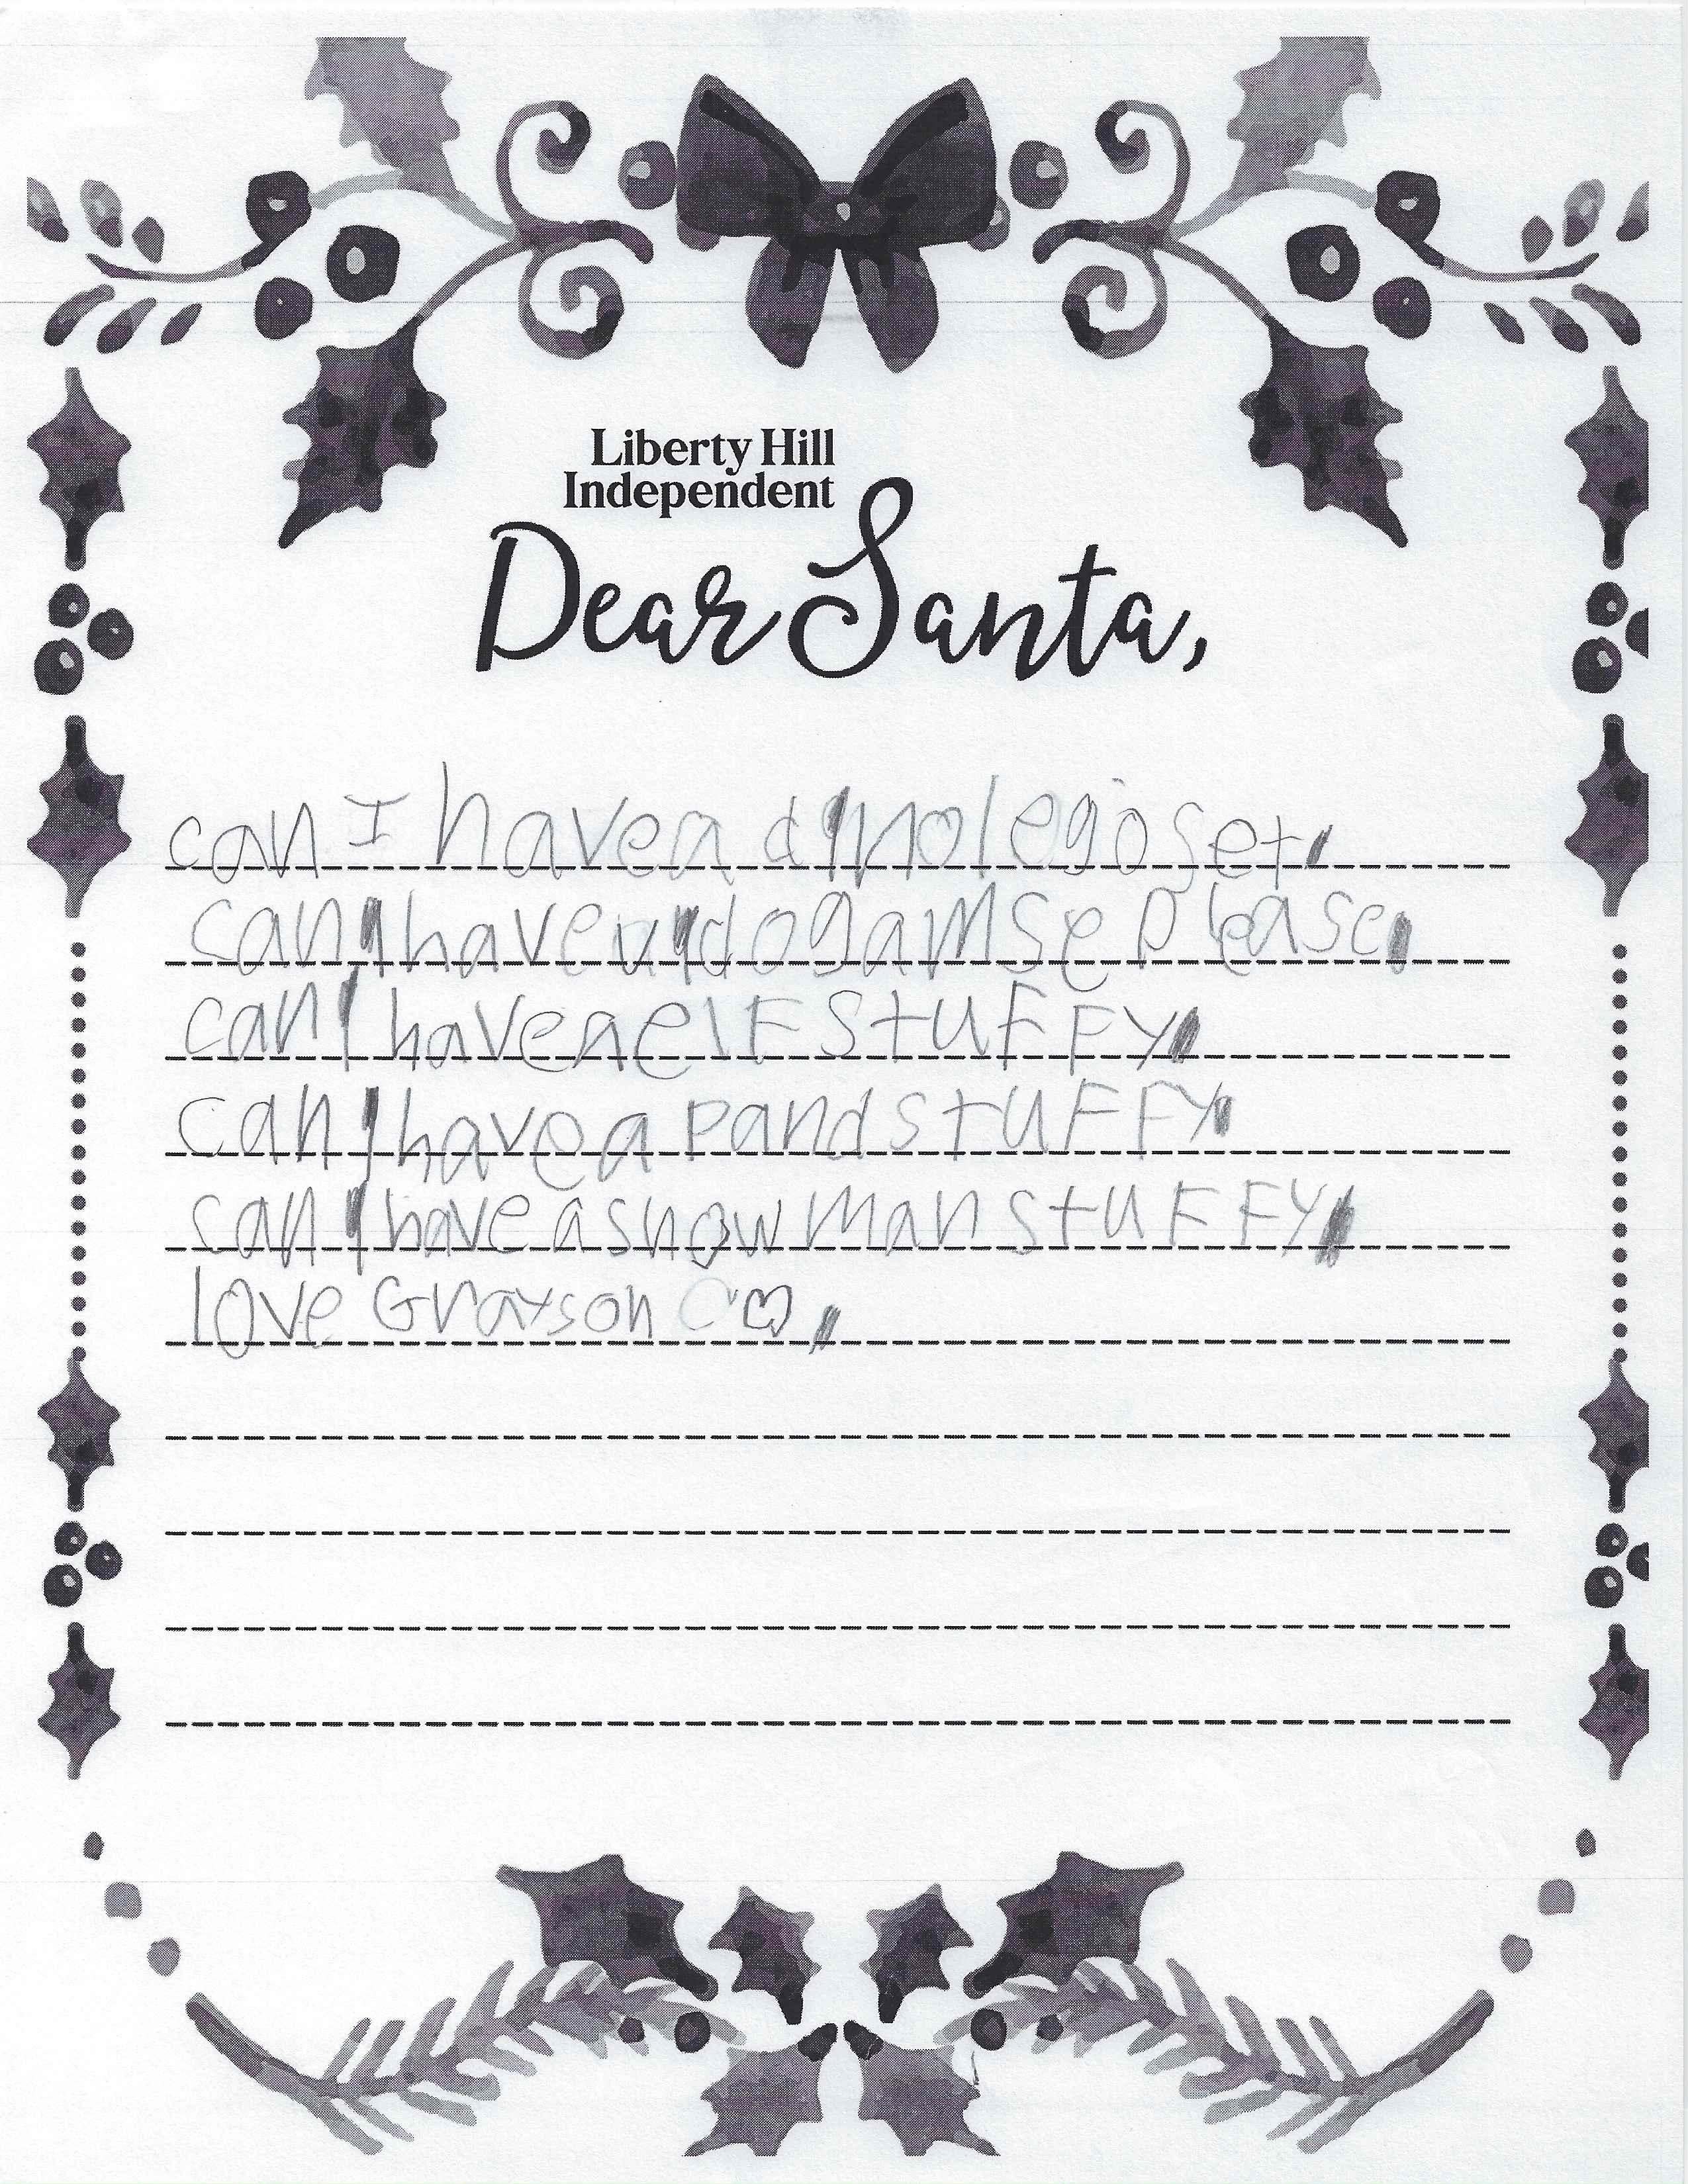 Liberty Hill
Independent
Dear Santa,
can I have a dino legos set.
can I have vidogamse please.
can I have a elF stuFFy.
can I have a Pand stuFFy.
can I have a snowman stuFFy.
love Grayson C ♡.